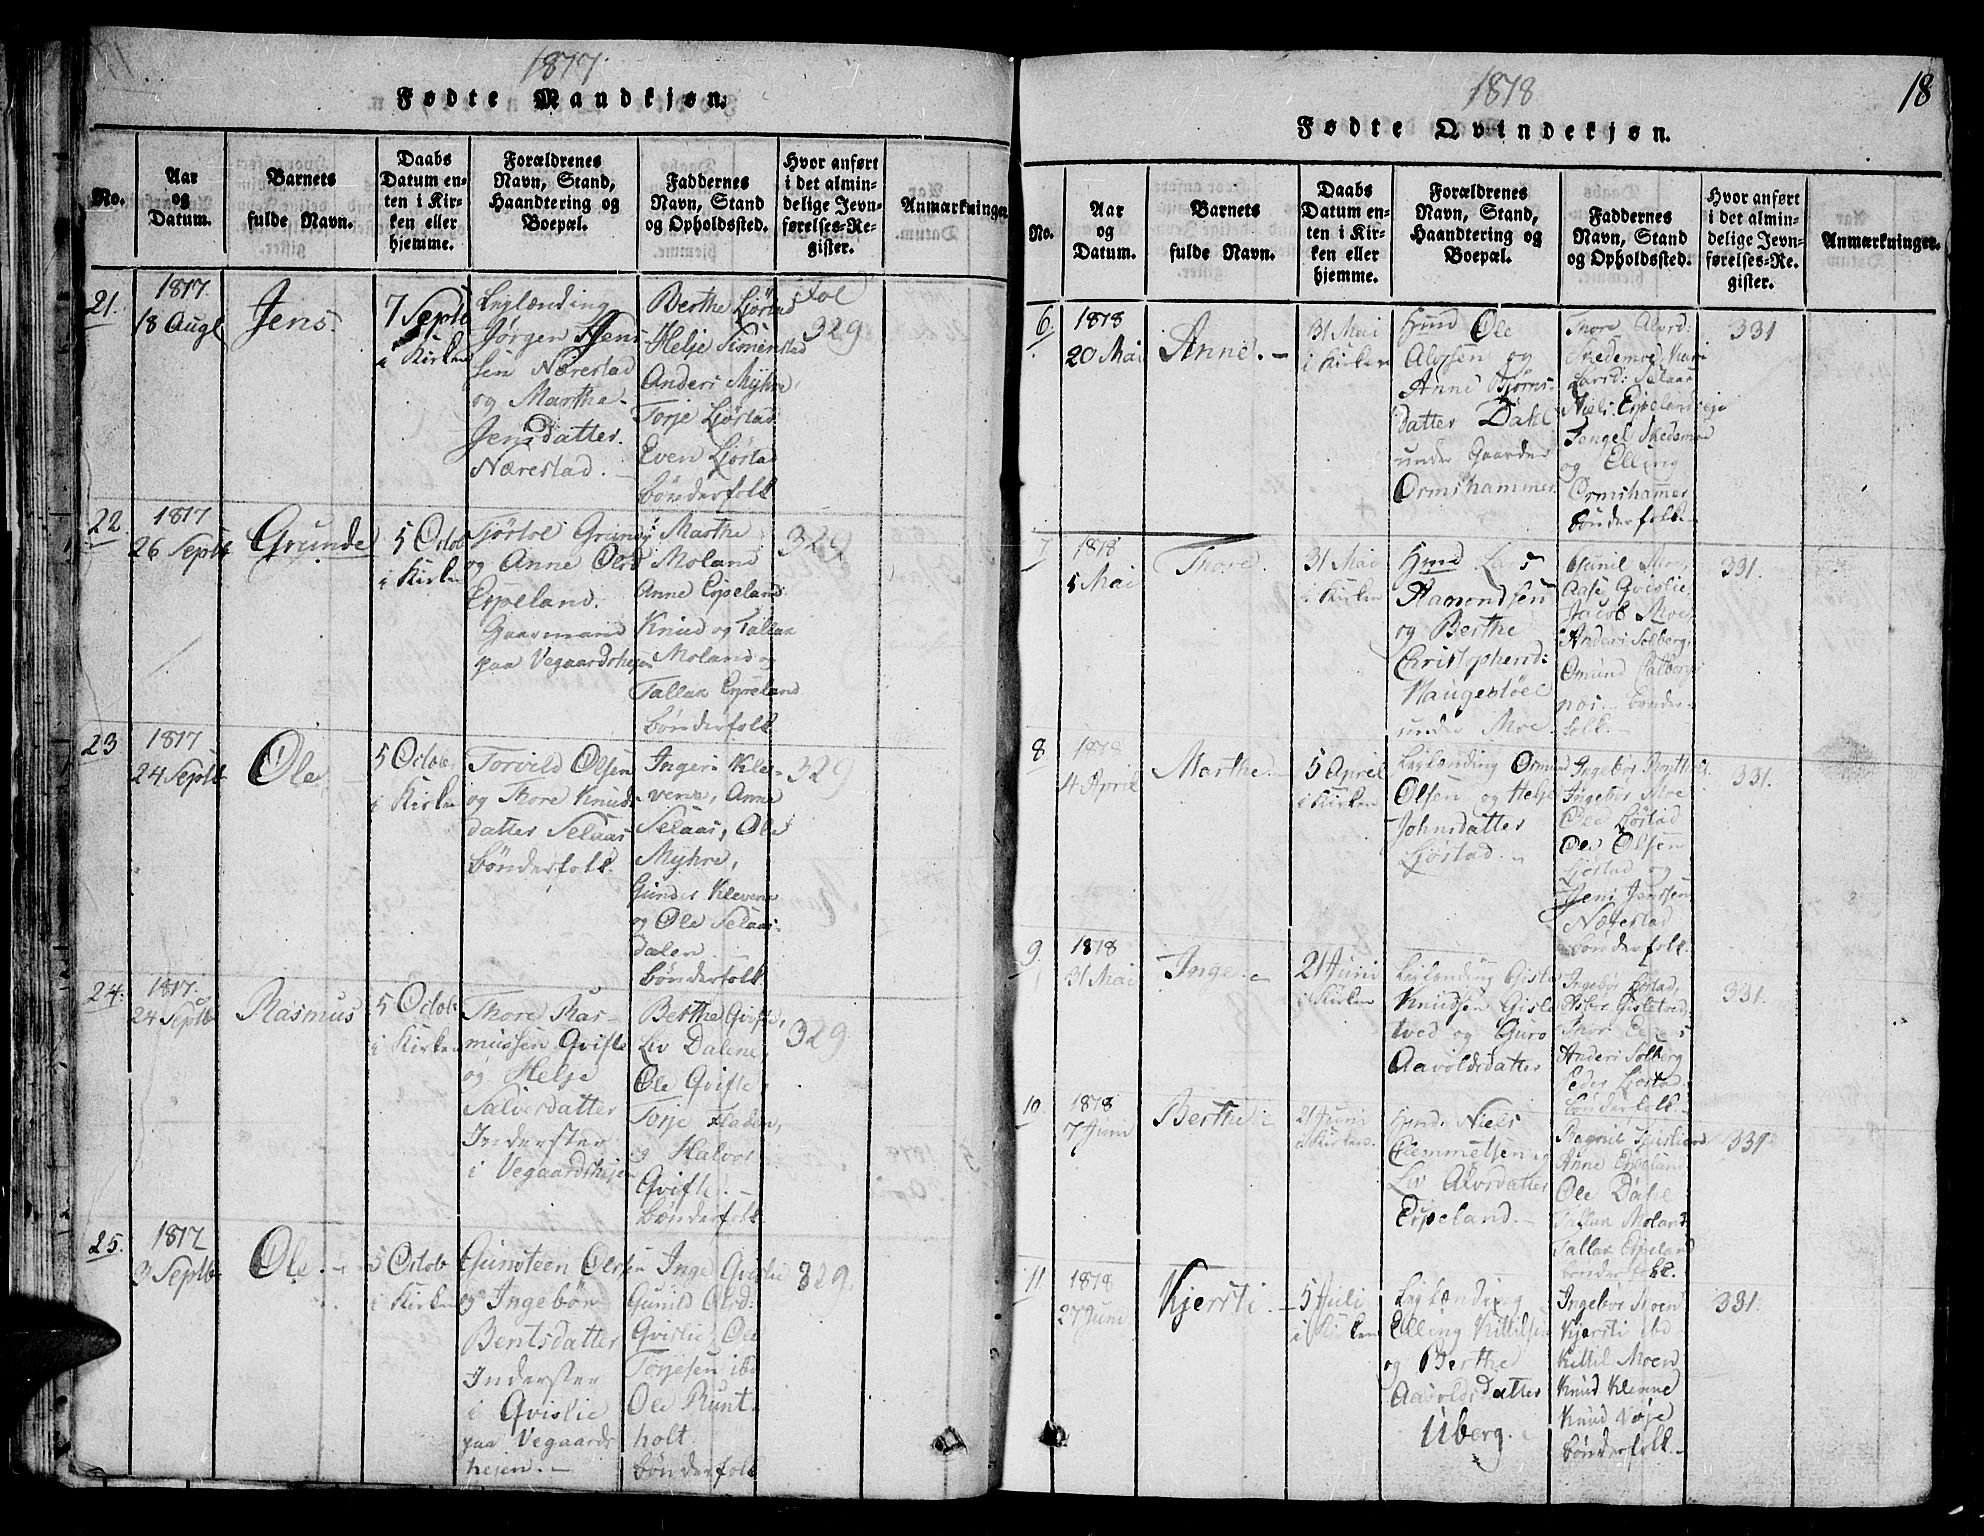 1817.
Fødte Mandkjøn.
No.
Aar
og
Datum.
Barnets
fulde Navn.
Daabs
Datum en-
ten i Kir-
ken eller
hjemme.
Forældrenes
Navn, Stand,
Haandtering og
Boepæl.
Faddernes
Navn, Stand
og Opholdssted.
Hvor anført
i det almin-
delige Jevn-
førelses-Re-
gister.
Anmærkninger.
21.
1817.
18 Augt
Jens.
7 Septb
i Kirken
Leylænding
Jørgen Jen-
sen Nærestad
og Marthe
Jensdatter
Nærestad. –
Berthe Ljøstad
Helje Simenstad
Anders Myhre,
Torje Ljøstad
Even Ljøstad
bønderfolk
Fol
329
22
1817
26 Septb
Grunde
5 Octob
i Kirken
Tjøstol Grundes:
og Anne Olsd
Espeland.
Gaarmand
paa Vegaardshejen
Marthe
Moland
Anne Espeland
Knud og Tallak
Moland og
Tallak Espeland
bønderfolk
329
23
1817
24 Septb
Ole.
5 Octob
i Kirken
Torvild Olsen
og Thore Knuds-
datter Selaas
bønderfolk.
Inger Kle-
vene, Anne
Selaas, Ole
Myhre,
Gunder Klevene
og Ole Selaas-
dalen
bønderfolk
329
24.
1817.
24 Septb
Rasmus
5 Octob
i Kirken
Thore Ras-
mussen Qvifte
og Helje
Salvesdatter
Inderster
i Vegaardshejen
Berthe Qvifte,
Liv Dalene,
Ole Qvifte
Torje Fladen,
og Halvor
Qvifte. –
bønderfolk
329
25.
1817
3 Septb
Ole. –
5 Octob
i Kirken
Gunsteen Olsen
og Ingebør
Bentsdatter
Inderster
i Qvislie
paa Vegaards
hejen. –
Inge Qvislie
Gunild Olsd:
Qvislie, Ole
Torjesen ibd
Ole Runt-
holt.
bønderfolk
329.
1818
18
Fødte Qvindekjøn.
No.
Aar
og
Datum.
Barnets
fulde Navn.
Daabs
Datum en-
ten i Kir-
ken eller
hjemme.
Forældrenes
Navn, Stand,
Haandtering og
Boepæl.
Faddernes
Navn, Stand
og Opholdssted.
Hvor anført
i det almin-
delige Jevn-
førelses-Re-
gister.
Anmærkninger.
6.
1818
20 Mai
Anne. –
31 Mai
i Kirken
Hmd Ole
Alvsen og
Anne Bjørns-
datter Dahl
under Gaarden
Ormshammer
Thore Alvsd:
Skedsmoe, Kari
Larsd: Selaas
Niels Espelandseje
Tengel Skedsmoe
og Elling
Ormshammer
bønderfolk. –
331
7.
1818
5 Mai
Thore.
31 Mai
i Kirken
Hmd Lars
Aamondsen
og Berthe
Christophersd:
Haugestøel
under Moe.
Gunil Moe,
Aase Qvislie,
Jacob Moe,
Anders Solberg,
Omund
næs. – bønder-
folk. –
331.
8
1818
4 April
Marthe. –
5 April
i Kirken
Leylænding Omund
Olsen og Helje
Johnsdatter
Ljøstad. –
Ingebør
Ingebør Moe
Ole Ljøstad
Ole Olsen
Ljøstad og
Jens Jenssen
Nærestad
bønderfolk.
331.
9.
1818
31 Mai
Inge. –
21 Juni
i Kirken
Leylænding Gisle
Knudsen Gisle-
tved og Guro
Aavoldsdatter
Ingebør Ljøstad,
Asler Gisletved,
Anders Solberg
Peder Ljøstad.
bønderfolk. –
331.
10.
1818
7 Juni
Berthe. –
21 Juni
i Kirken.
Hmd: Niels
Clemmetsen og
Liv Alvsdatter
Espeland. –
Ragnil
Anne Espeland
Ole Dahl
Tallak Moland
Tallak Espeland
bønderfolk.
331
11.
1818
27 Juni
Kjersti. –
5 Juli
i Kirken
Leylænding
Elling Kittilsen
og Berthe
Aavoldsdatter
Uberg. –
Ingebør Moen
Kjersti ibd
Kittil Moen
Knud Klevene
Knud Voje
bønderfolk. –
331.